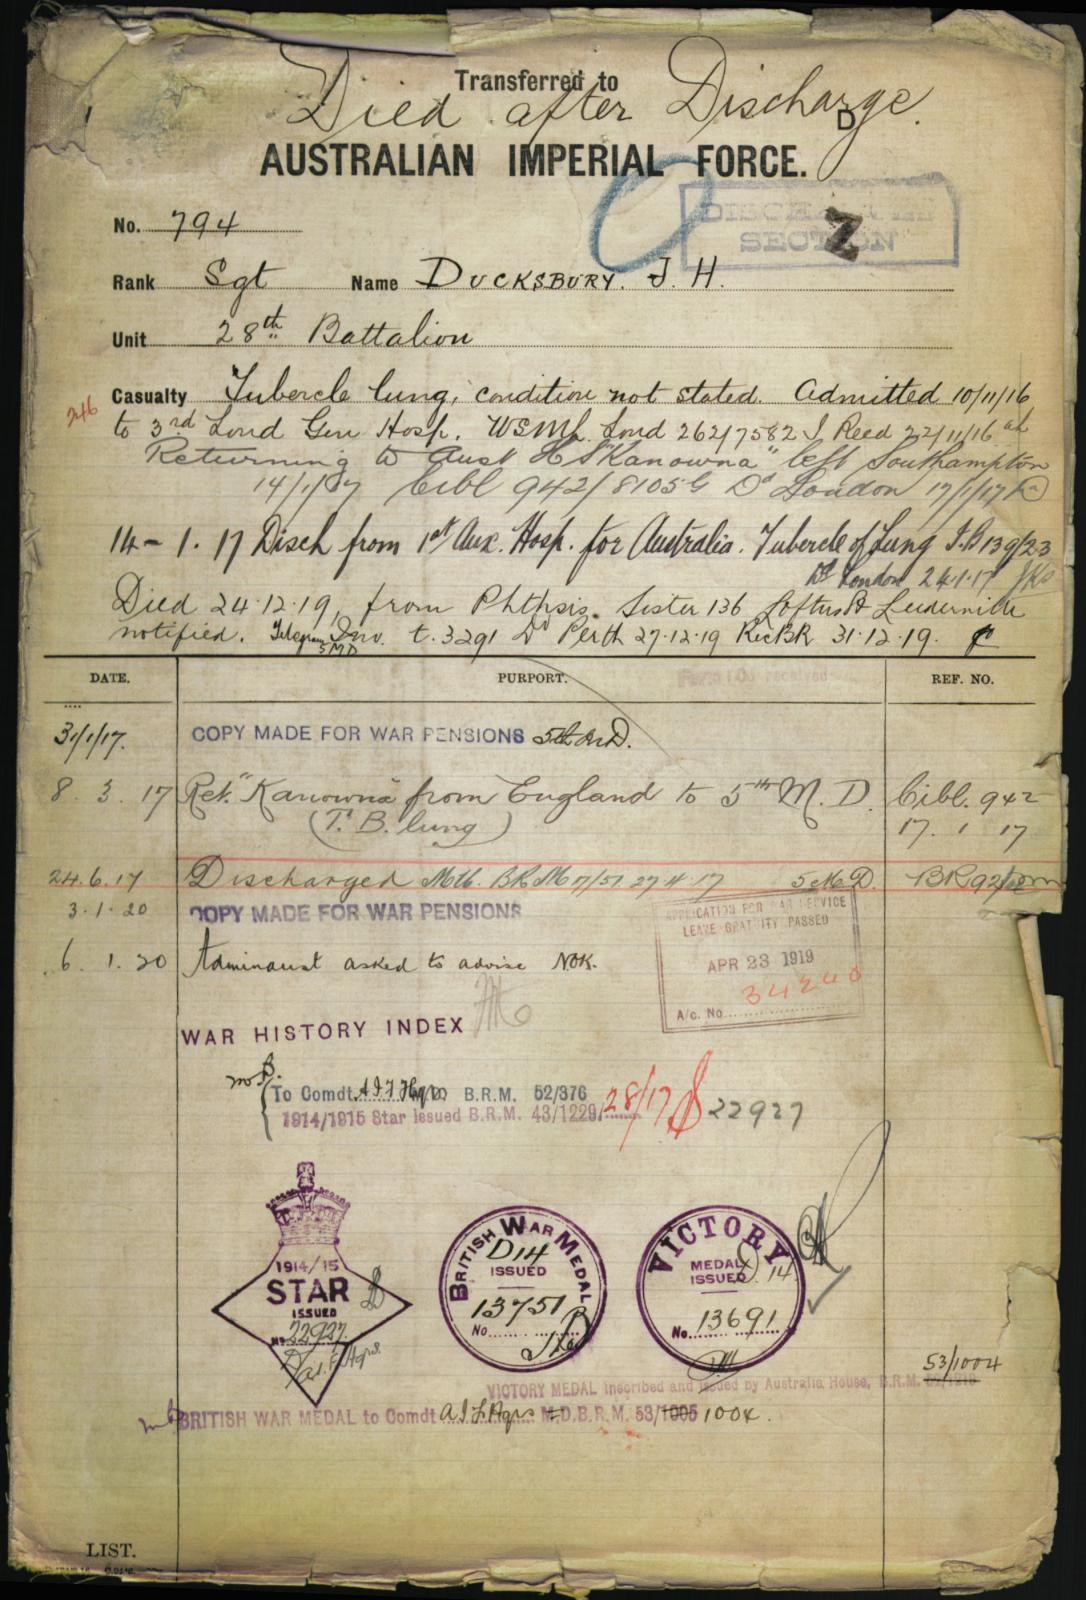 Transferred to
Died after Discharge.
D
AUSTRALIAN IMPERIAL FORCE.
No. 794
DISCHARGED
SECTION
Z
Rank Sgt Name DUCKSBURY. J. H.
Unit 28th Battalion
Casualty Tubercle lung, condition not stated. Admitted 10/11/16
246
to 3rd Lond Gen Hosp. Lond 262/7582 22/11/16
Returning to Aust H.S "Kanowna" left Southampton
14/1/17 Cibl 942/8105 G Dd London 17/1/17
14-1.17 Disch from 1st Aux. Hosp. for Australia. Tubercle of Lung I.B 139/23
Dd London 24.1.17
Died 24.12.19, from Phthisis. Sister 136 Loftus St Leederville
notified. Telegram t.3291 Dd Perth 27.12.19 Rec BR 31.12.19.
5 MD
DATE. PURPORT. REF. NO.
31/1/17. COPY MADE FOR WAR PENSIONS 5th M.D.
8. 3. 17 Ret. "Kanowna" from England to 5th M. D. Cibl. 942
(T. B. lung) 17. 1 17
24.6.17 Discharged BRM 7/51 27.4.17 5 M.D. BR92/
3.1.20 COPY MADE FOR WAR PENSIONS
APPLICATION FOR WAR SERVICE
LEAVE GRATUITY PASSED
6. 1. 20 Adminaust asked to advise NOK.
APR 23 1919
34240
A/c. No.
WAR HISTORY INDEX
To Comdt. A I F Hqrs B.R.M. 52/376
1914/1915 Star Issued B.R.M. 43/1229/ 28/17 22927
1914/15
STAR
ISSUED
No 22927
BRITISH WAR MEDAL
D14
ISSUED
13751
No.
VICTORY
MEDAL
ISSUED D. 14
No. 13691
53/1004
VICTORY MEDAL inscribed and issued by Australia House, B.R.M.
BRITISH WAR MEDAL to Comdt A.I.F. Hqrs M.D.B.R.M. 53/1005 1004.
LIST.